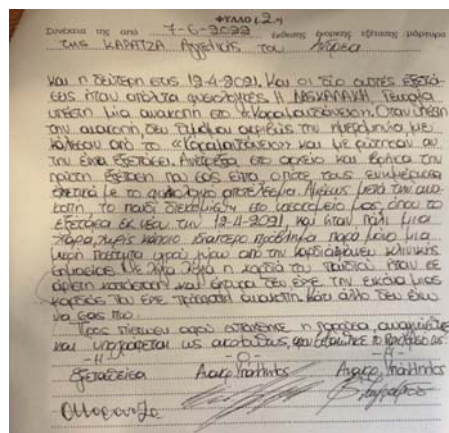 ΦΥΛΛΟ (2ο)
Συνέχεια της από 7-6-2022 έκθεσης ένορκης εξέτασης μάρτυρα
της ΚΑΡΑΤΖΑ Αγγελικής του Ανδρέα
και η δεύτερη στις 12-4-2021. Και οι δύο αυτές εξετά-
σεις ήταν απόλυτα φυσιολογικές. Η ΔΑΣΚΑΛΑΚΗ Γεωργία
υπέστη μία ανακοπή στο «Καραμανδάνειο». Όταν υπέστη
την ανακοπή, δεν θυμάμαι ακριβώς την ημερομηνία, με
κάλεσαν από το «Καραμανδάνειο» και με ρώτησαν αν
την είχα εξετάσει. Ανέτρεξα στο αρχείο και βρήκα την
πρώτη εξέταση που σας είπα, οπότε τους ενημέρωσα
σχετικά με το φυσιολογικό αποτέλεσμα. Αμέσως μετά την ανα-
κοπή το παιδί διεκομίσθη στο νοσοκομείο μας, όπου το
εξέτασα εκ νέου την 12-4-2021 και ήταν πάλι μια
χαρά, χωρίς κάποιο ιδιαίτερο πρόβλημα παρά μόνο μια
μικρή ποσότητα υγρού γύρω από την καρδιά άνευ κλινικής
σημασίας. Με λίγα λόγια η καρδιά του παιδιού ήταν σε
άριστη κατάσταση και σίγουρα δεν είχε την εικόνα μιας
καρδιάς που είχε πρόσφατη ανακοπή. Κάτι άλλο δεν έχω
να σας πω.
Προς πίστωση αφού συντάχθηκε η παρούσα, αναγνώσθηκε
και υπογράφεται ως ακολούθως,
-Η- -Ο- -Η-
Εξετασθείσα Ανακρ. Υπάλληλος Ανακρ. Υπάλληλος